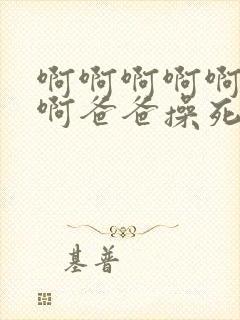 啊啊啊啊啊
啊爸爸操死
基普